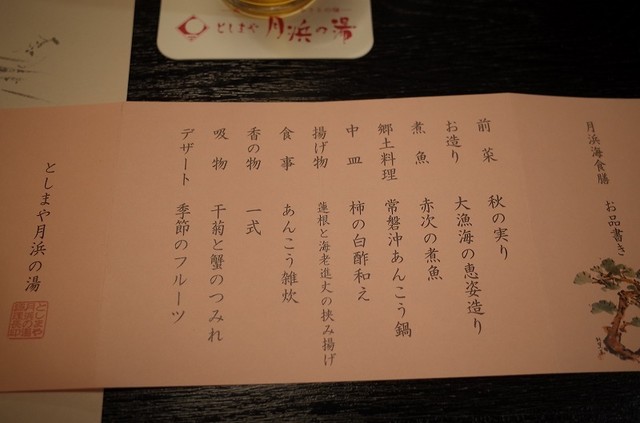 としまや 月浜の湯
月浜海食膳 お品書き
前菜 秋の実り
お造り 大漁海の恵姿造り
煮魚 赤次の煮魚
郷土料理 常磐沖あんこう鍋
中皿 柿の白酢和え
揚げ物 蓮根と海老進丈の挟み揚げ
食事 あんこう雑炊
香の物 一式
吸物 干菊と蟹のつみれ
デザート 季節のフルーツ
としまや月浜の湯